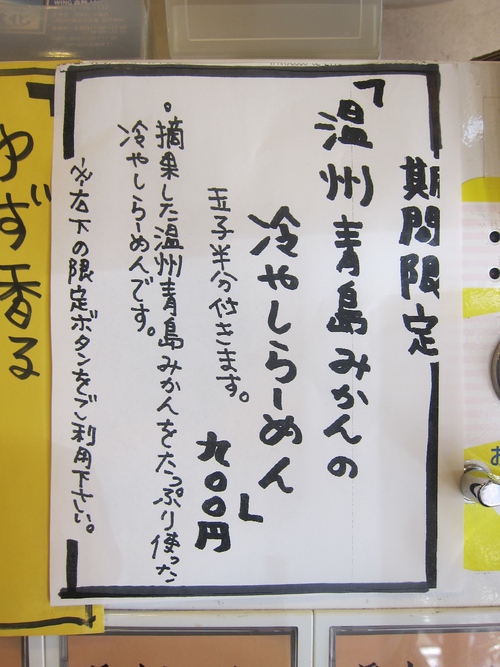 期間限定
「温州青島みかんの
冷やしらーめん」
玉子半分付きます。
九〇〇円
。摘果した温州青島みかんをたっぷり使った
冷やしらーめんです。
※左下の限定ボタンをご利用下さい。
ゆず香る